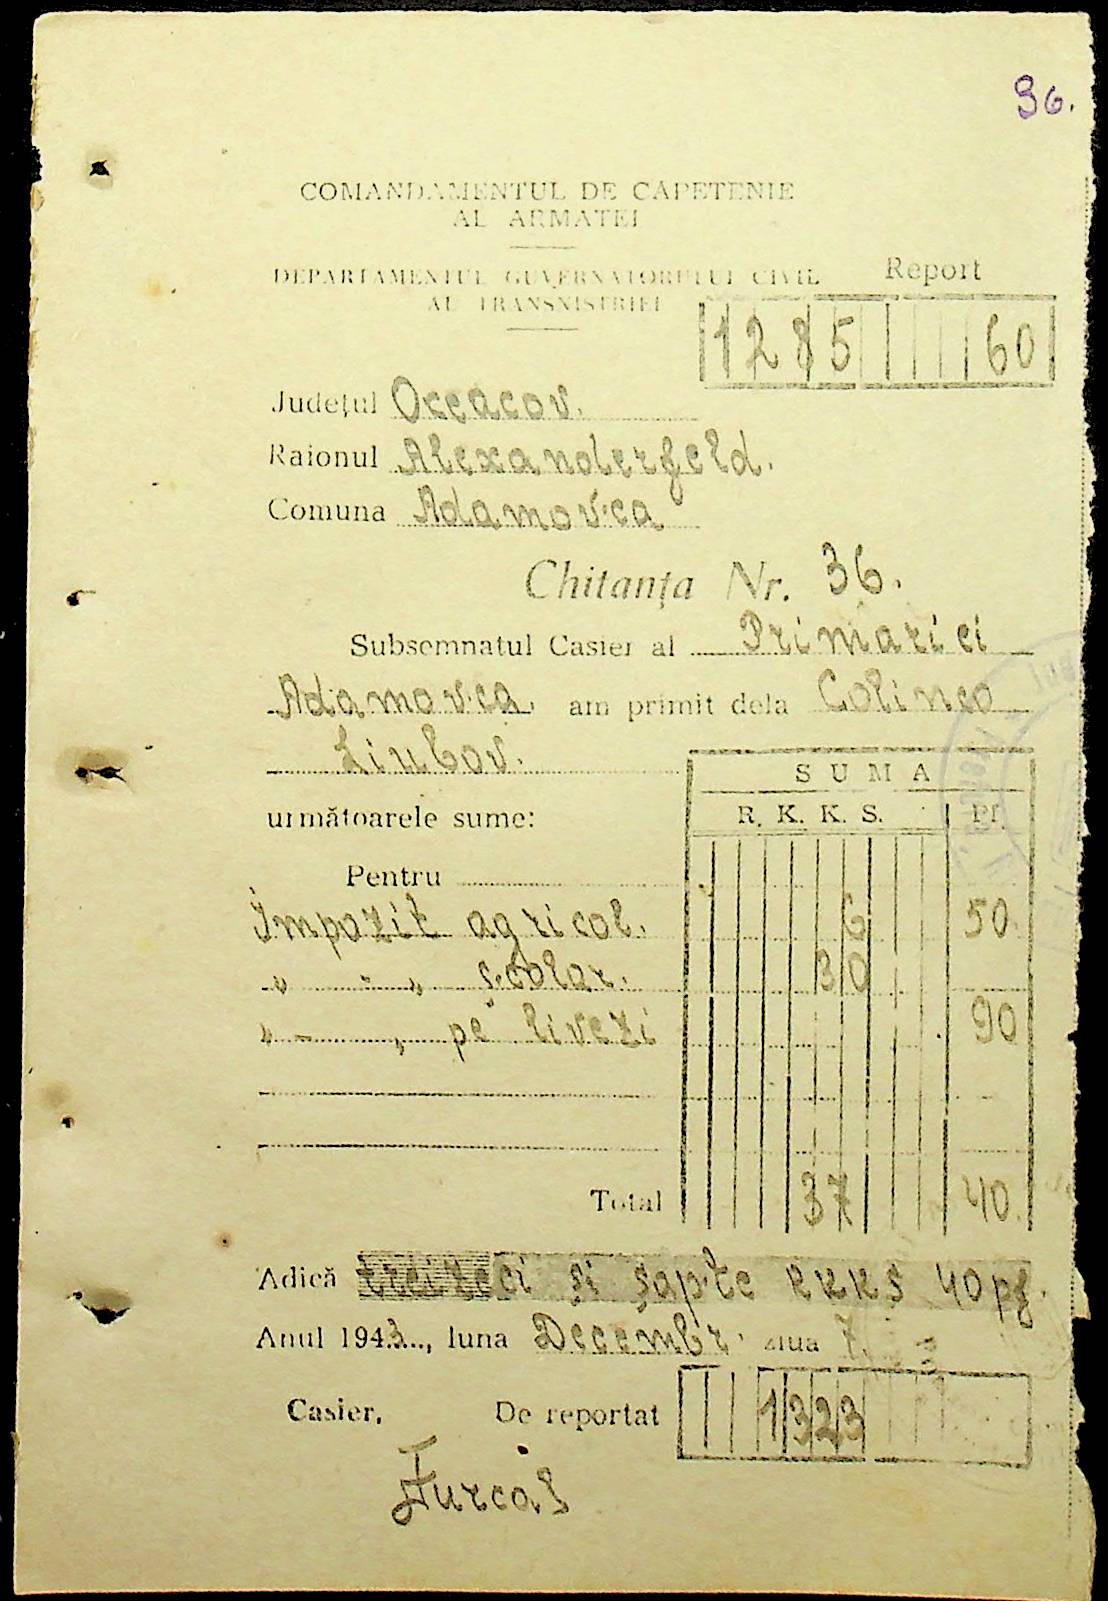 96.
COMANDAMENTUL DE CAPETENIE
AL ARMATEI
DEPARTAMENTUL GUVERNATORULUI CIVIL
AL TRANSNISTRIEI
Report
1285 60
Județul Oceacov.
Raionul Alexanderfeld.
Comuna Adamovca
Chitanța Nr. 36.
Subsemnatul Casier al Primariei
Adamovca am primit dela Colinco
Liubov.
SUMA
următoarele sume: R. K. K. S. Pf.
Pentru
Impozit agricol. 6 50
" - " școlar. 30
" - " pe livezi 90
Total 37 40
Adică treizeci și șapte RKKS 40 pf.
Anul 1943, luna Decembr. ziua 7.
Casier, De reportat 1323
Furcal